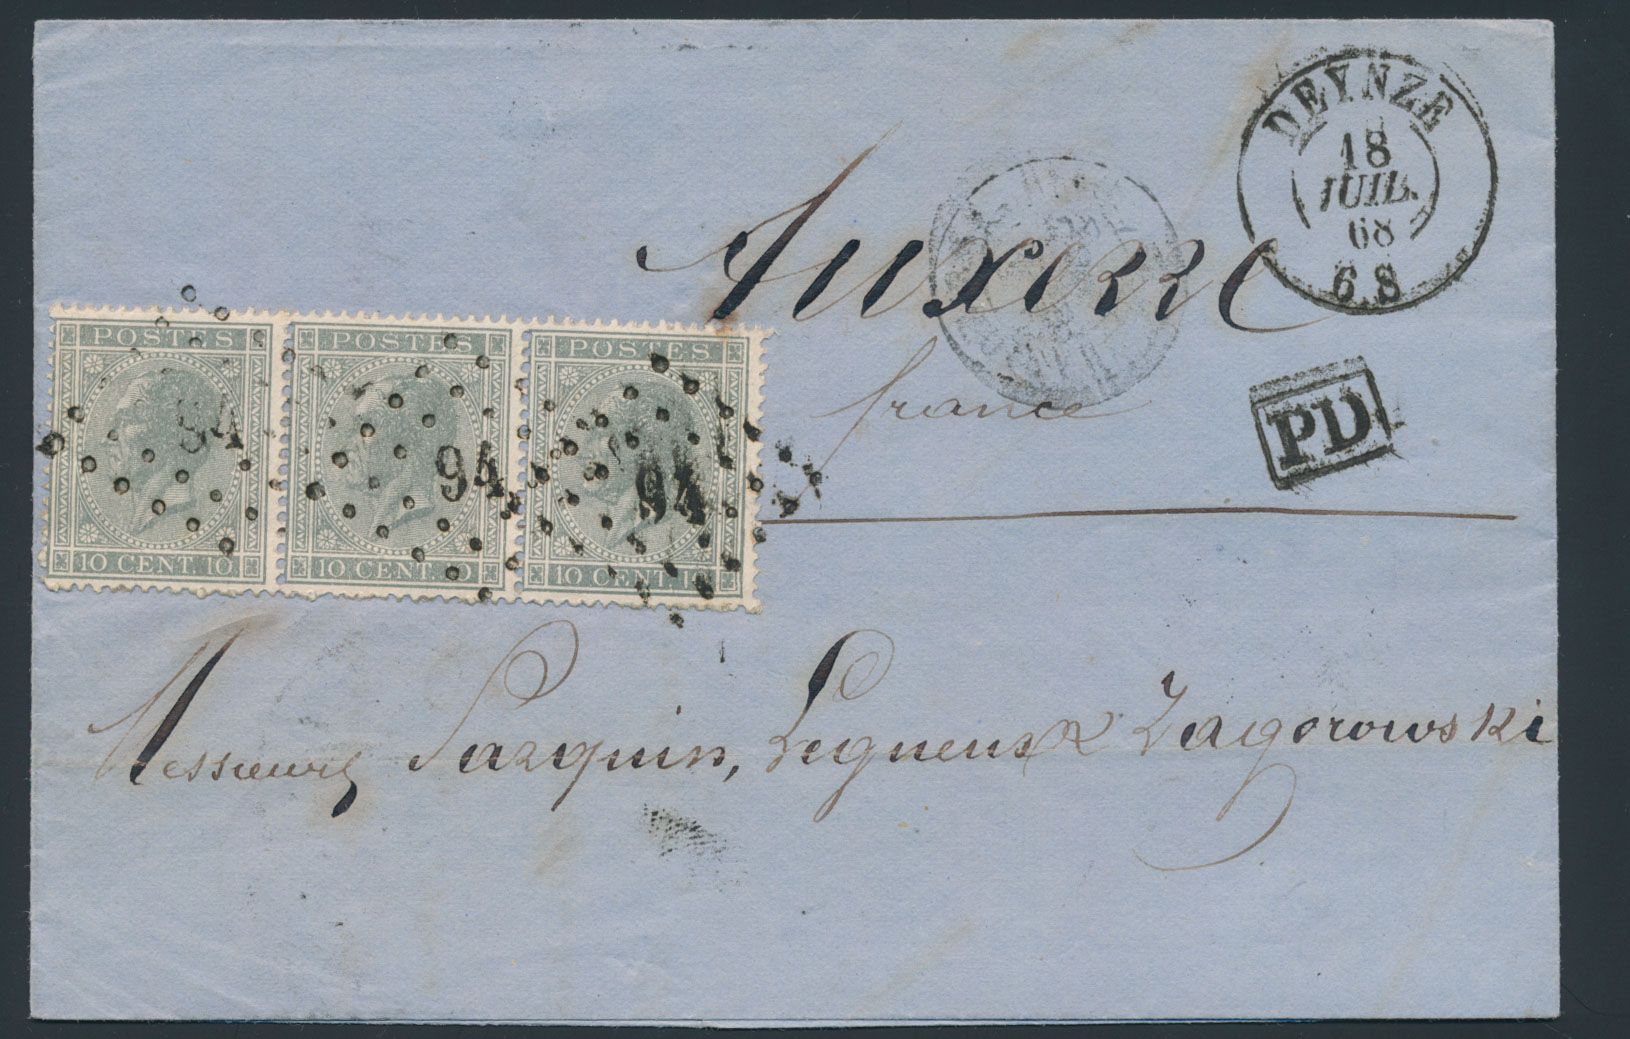 DEYNZE
18
JUIL.
68
6 S
Auxerre
france
PD
POSTES POSTES POSTES
94 94 94
10 CENT. 10 10 CENT. 10 10 CENT. 10
Messieurs Parquin, Legueux & Zagorowski